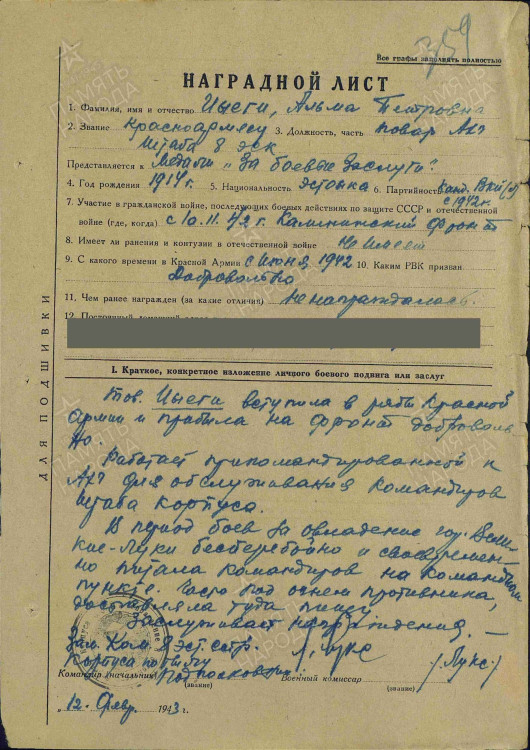 359
Все графы заполнять полностью
НАГРАДНОЙ ЛИСТ
1. Фамилия, имя и отчество Иыеги, Альма Петровна
2. Звание Красноармеец 3. Должность, часть повар АХЧ
штаба 8 эск
Представляется к Медали „За боевые заслуги".
4. Год рождения 1914 г. 5. Национальность эстонка 6. Партийность Канд. ВКП(б)
с 1942 г.
7. Участие в гражданской войне, последующих боевых действиях по защите СССР и отечественной
войне (где, когда) с 10.11.42 г. Калининский фронт
8. Имеет ли ранения и контузии в отечественной войне Не имеет
9. С какого времени в Красной Армии с июня 1942 10. Каким РВК призван
Добровольно
11. Чем ранее награжден (за какие отличия) Не награждалась.
I. Краткое, конкретное изложение личного боевого подвига или заслуг
Тов. Иыеги вступила в ряды Красной
Армии и прибыла на фронт добровольно
но.
Работает прикомандированной к
АХЧ для обслуживания командиров
штаба корпуса.
В период боев за овладение гор. Вели-
кие-Луки бесперебойно и своевремен-
но питала командиров на командном
пункте. Часто под огнем противника,
доставляла туда пищу.
Заслуживает награждения. —
Зам. Ком. 8 эст. стр.
Корпуса по тылу
Командир (начальник) Подполковник
(звание)
Лукс
Военный комиссар /Лукс/
(звание)
„12" Февр. 1943 г.
ДЛЯ ПОДШИВКИ
ПАМЯТЬ НАРОДА